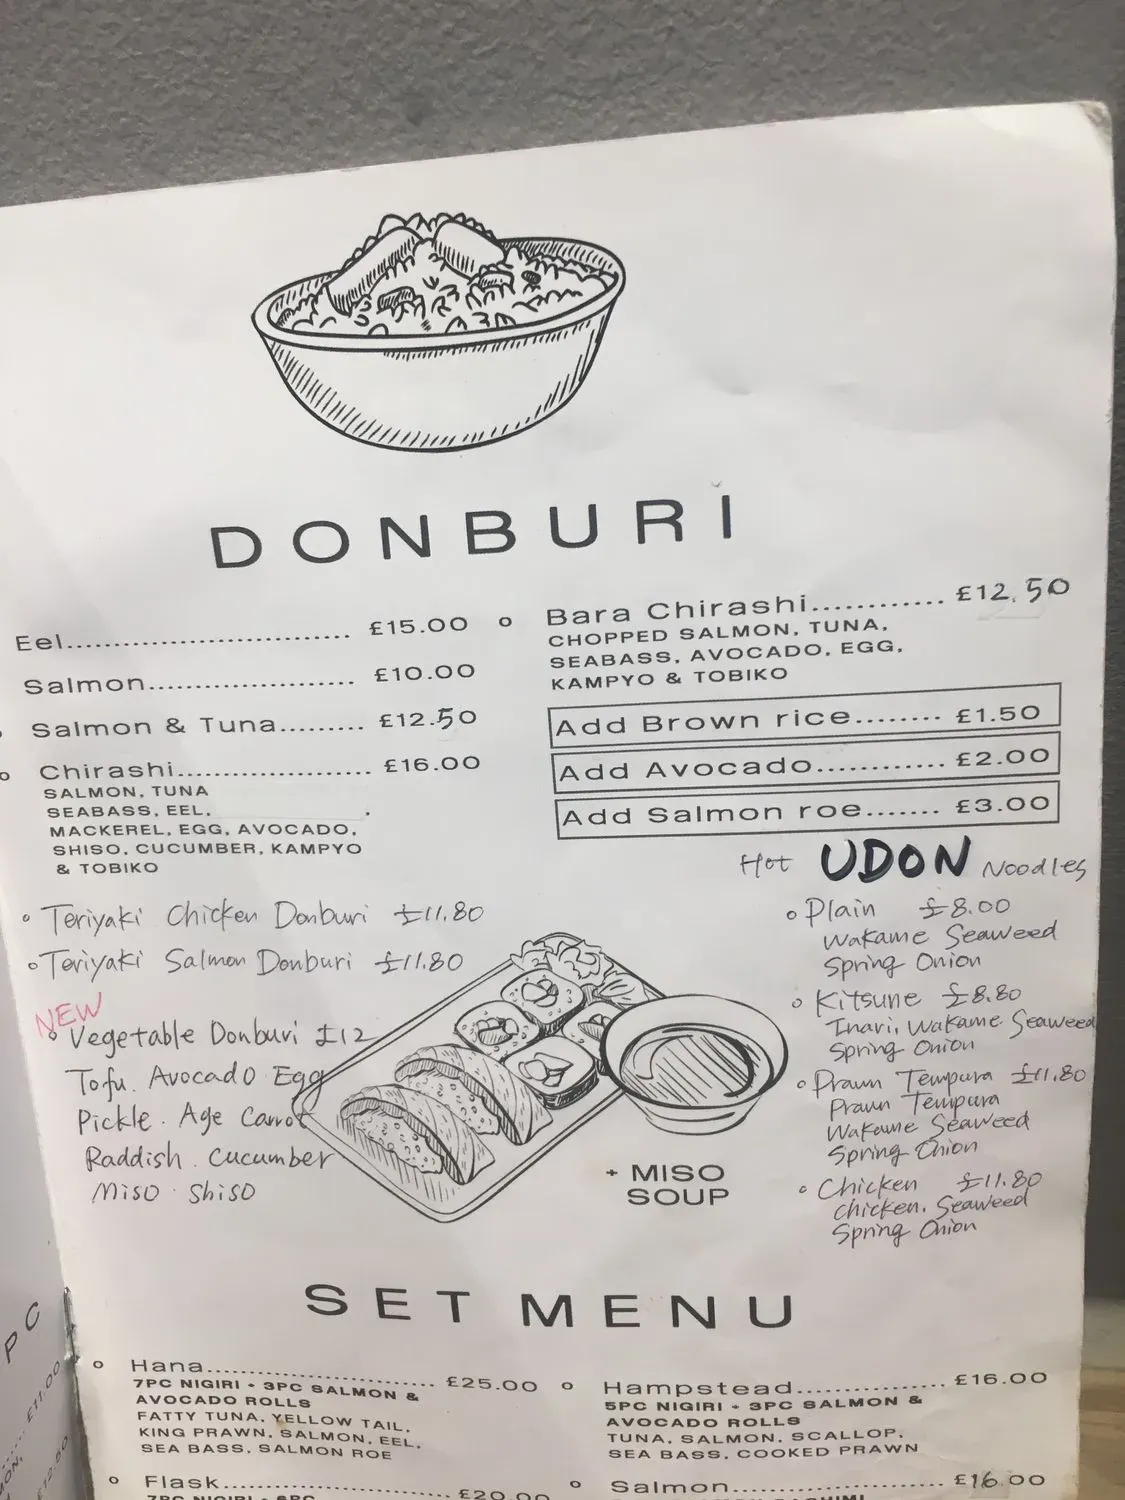 DONBURI
Eel............................ £15.00
Salmon..................... £10.00
Salmon & Tuna......... £12.50
Chirashi..................... £16.00
SALMON, TUNA
SEABASS, EEL,
MACKEREL, EGG, AVOCADO,
SHISO, CUCUMBER, KAMPYO
& TOBIKO
Teriyaki Chicken Donburi £11.80
Teriyaki Salmon Donburi £11.80
NEW
Vegetable Donburi £12
Tofu. Avocado Egg
Pickle. Age Carrot
Raddish. Cucumber
Miso. Shiso
Bara Chirashi............ £12.50
CHOPPED SALMON, TUNA,
SEABASS, AVOCADO, EGG,
KAMPYO & TOBIKO
Add Brown rice........ £1.50
Add Avocado............ £2.00
Add Salmon roe....... £3.00
Hot UDON Noodles
Plain £8.00
Wakame Seaweed
Spring Onion
Kitsune £8.80
Inari, Wakame Seaweed
Spring Onion
Prawn Tempura £11.80
Prawn Tempura
Wakame Seaweed
Spring Onion
Chicken £11.80
chicken, Seaweed
Spring Onion
+ MISO
SOUP
SET MENU
Hana........................ £25.00
7PC NIGIRI + 3PC SALMON &
AVOCADO ROLLS
FATTY TUNA, YELLOW TAIL,
KING PRAWN, SALMON, EEL,
SEA BASS, SALMON ROE
Flask........................ £20.00
7PC NIGIRI + 6PC
Hampstead............... £16.00
5PC NIGIRI + 3PC SALMON &
AVOCADO ROLLS
TUNA, SALMON, SCALLOP,
SEA BASS, COOKED PRAWN
Salmon..................... £16.00
PC
£11.00
£12.50